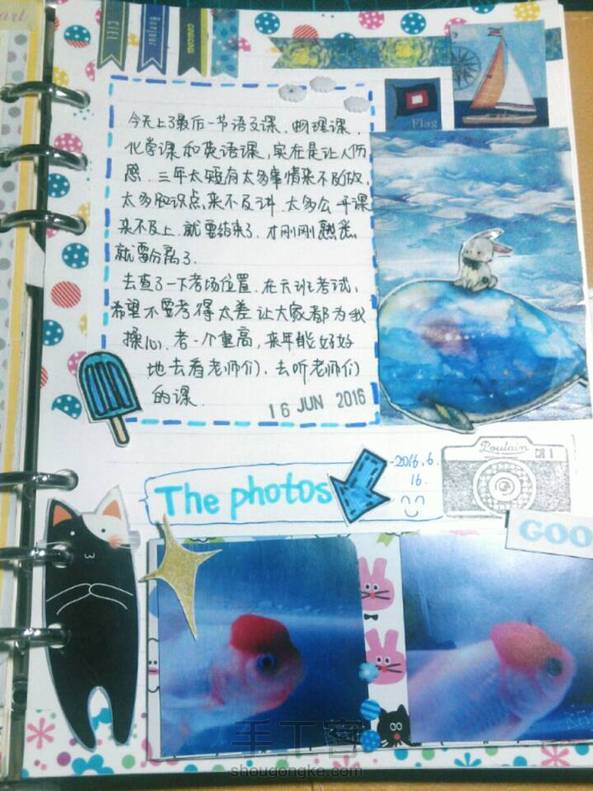 art
Bonjour
今天上了最后一节语文课、物理课、
化学课和英语课,实在是让人伤
感. 三年太短有太多事情来不及做
太多知识点来不及讲 太多公开课
来不及上 就要结束了. 才刚刚熟悉
就要分离了.
去查了一下考场位置. 在六班考试,
希望不要考得太差让大家都为我
操心. 考一个重高, 来年能好好
地去看老师们. 去听老师们
的课.
16 JUN 2016
Flag
The photos
2016.6.
16.
Poulain
GOO
手工客
shougongke.com